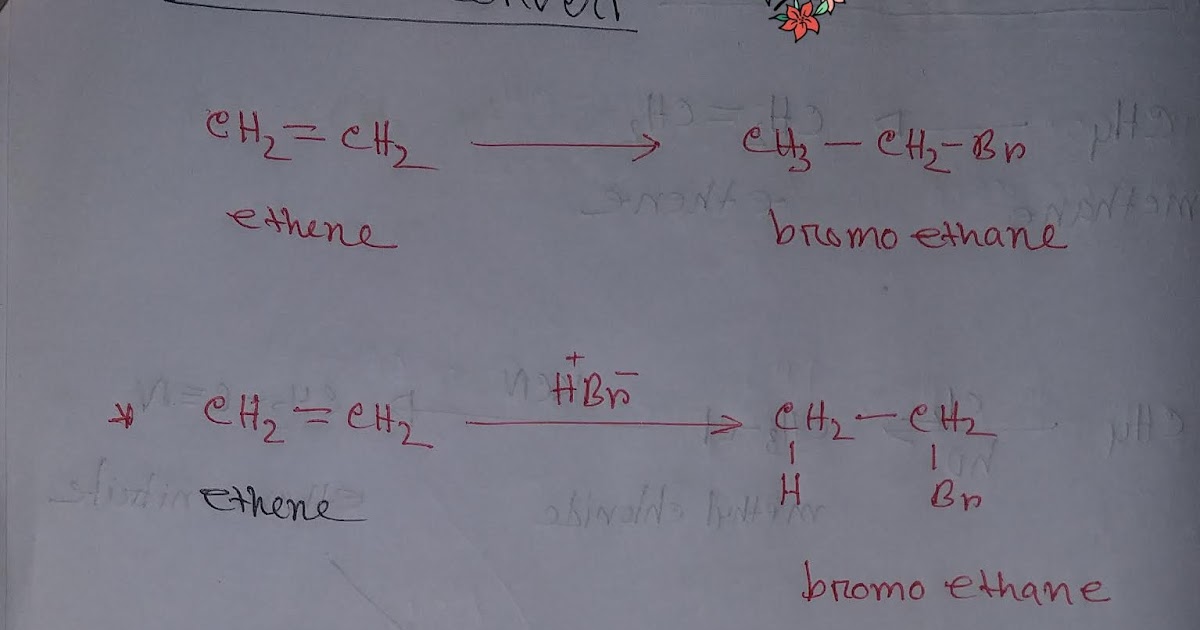 CH₂ = CH₂ ⟶ CH₃ — CH₂ – Br
ethene bromo ethane
H⁺Br⁻
* CH₂ = CH₂ ⟶ CH₂ — CH₂
| |
H Br
ethene
bromo ethane